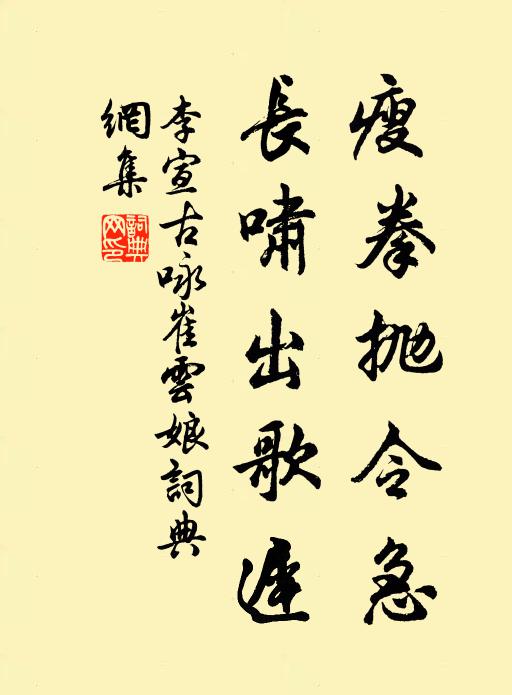 瘦拳抛令急
長嘯出歌遲
李宣古咏崔雲娘詞典
網集
詞典網印